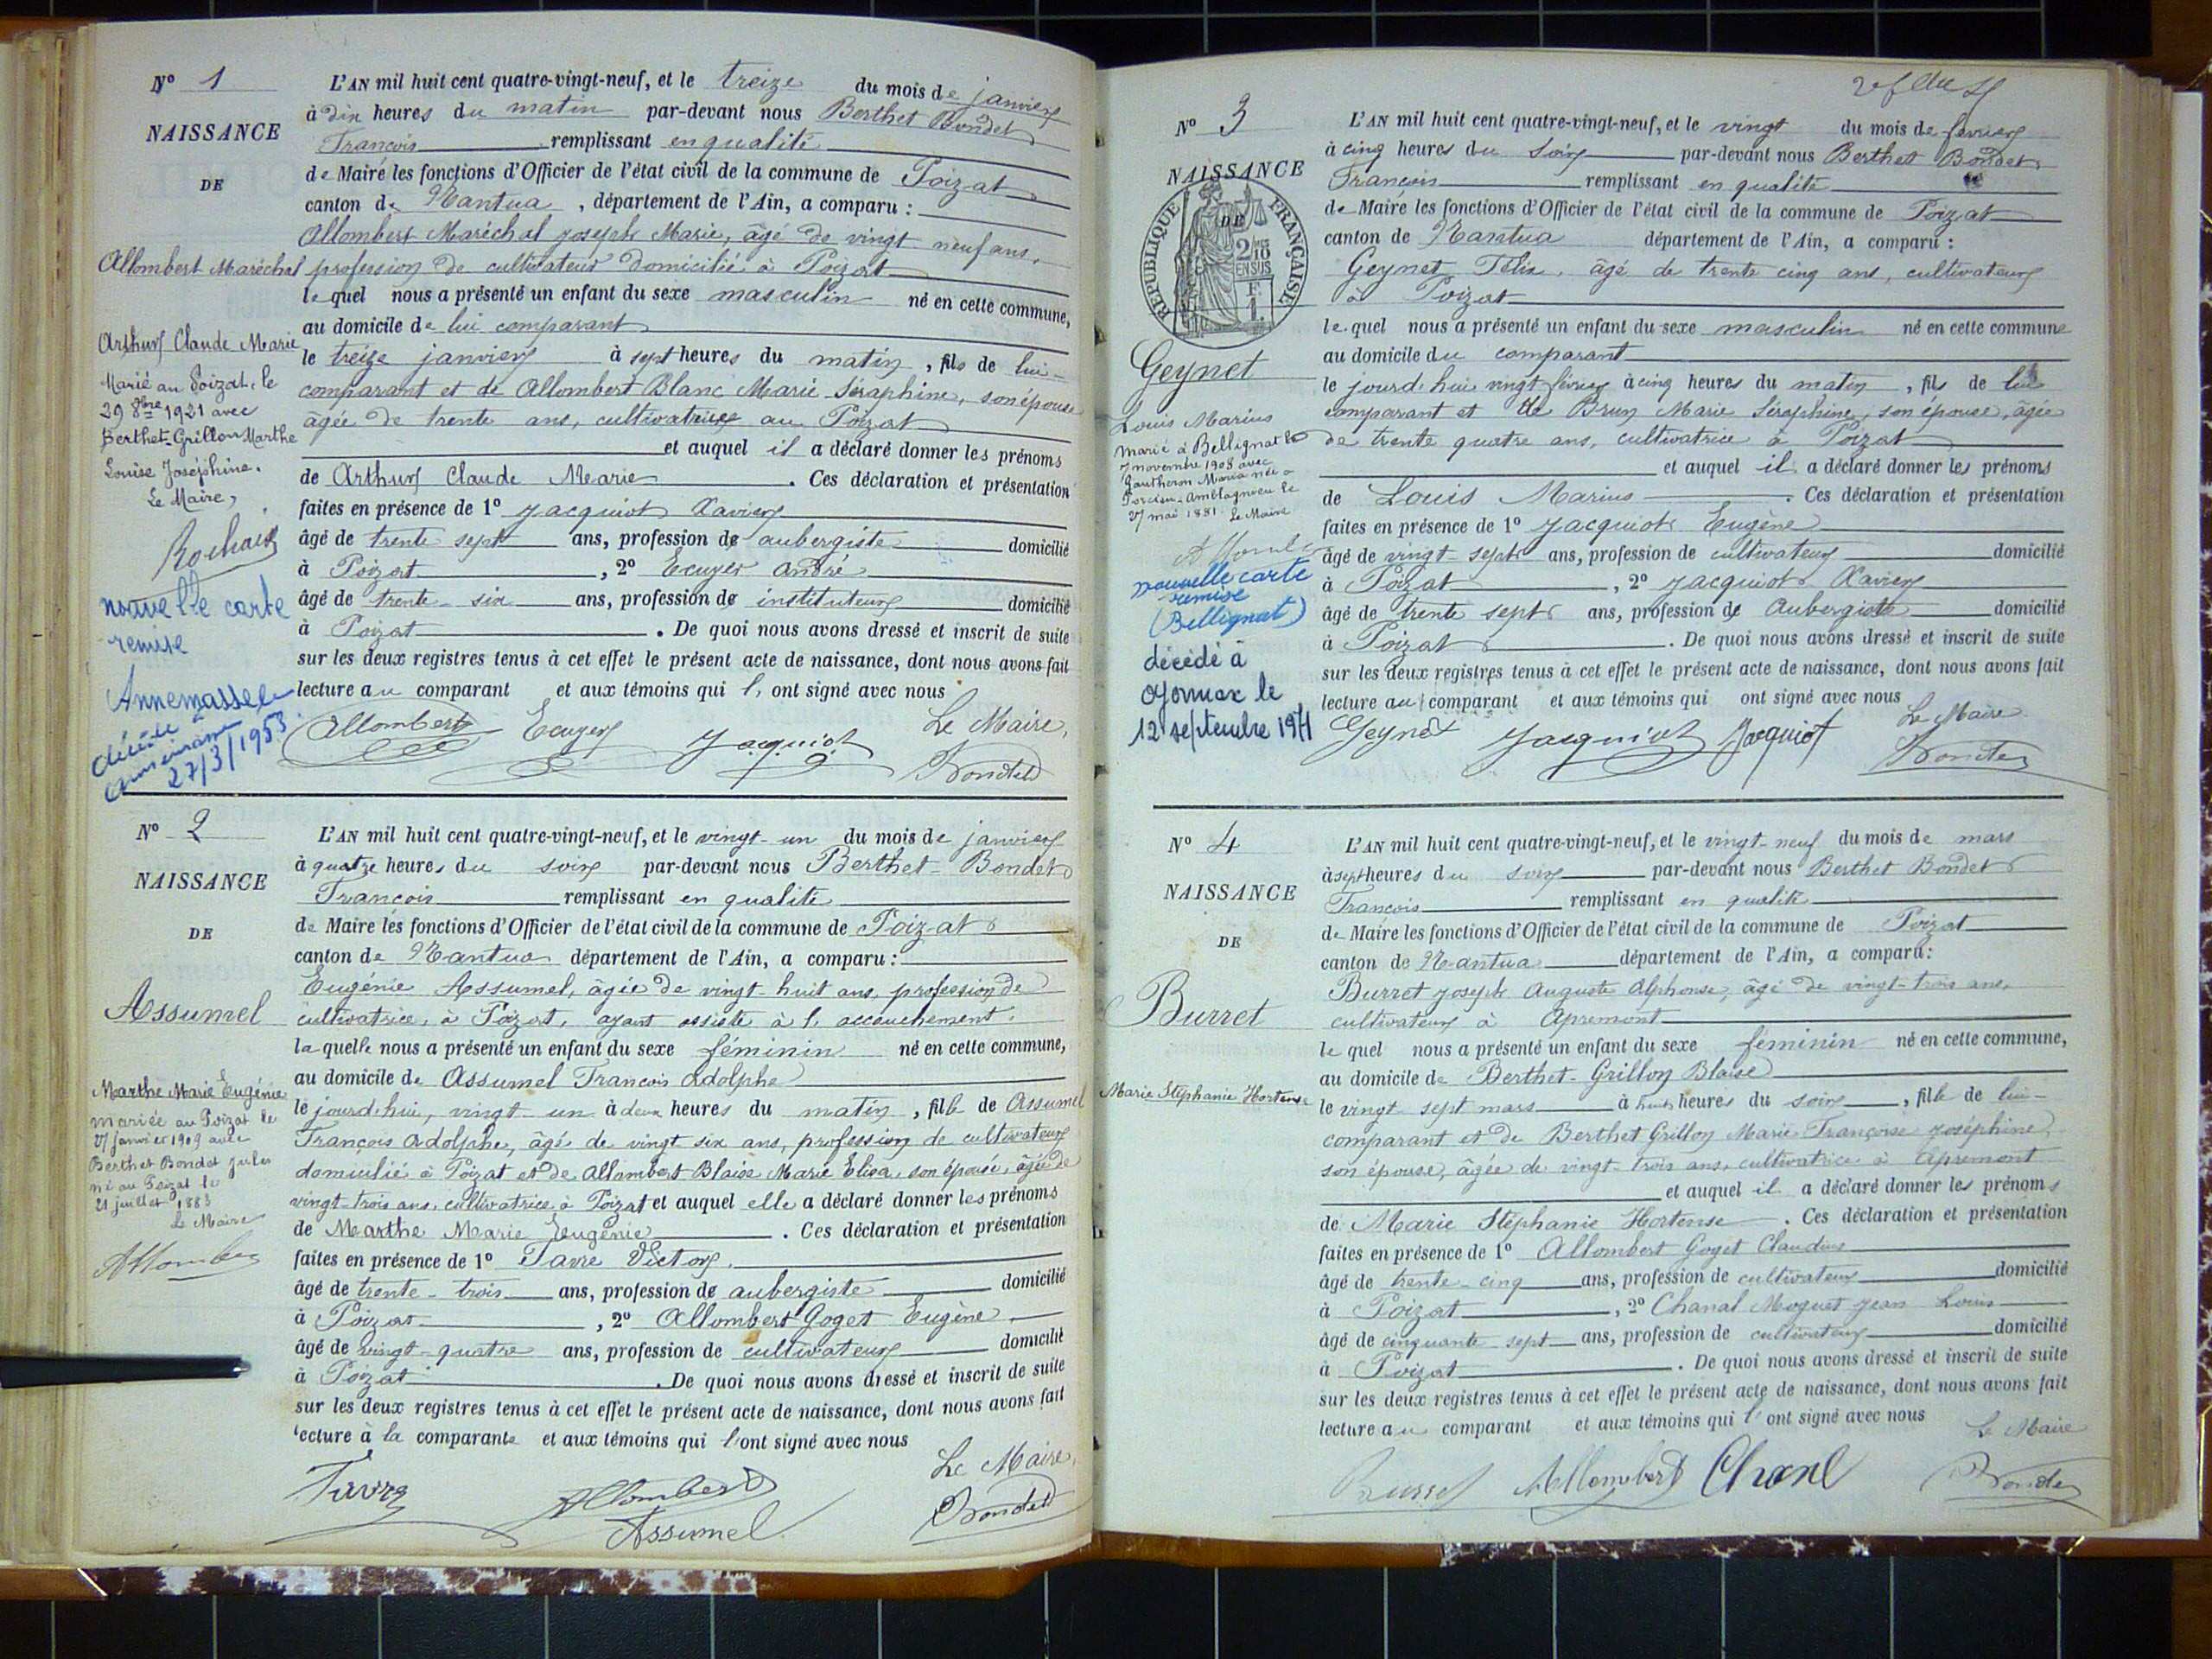 N° 1
NAISSANCE
DE
Allombert Maréchal
Arthur Claude Marie
Marié au Poizat, le
29 8bre 1921 avec
Berthet-Grillon Marthe
Louise Joséphine.
Le Maire,
Rochaix
nouvelle carte
remise
Annemasse
décédé à
27/3/1953
L'AN mil huit cent quatre-vingt-neuf, et le treize du mois de janvier
à dix heures du matin par-devant nous Berthet Bondet
François remplissant en qualité
de Maire les fonctions d'Officier de l'état civil de la commune de Poizat
canton de Nantua, département de l'Ain, a comparu :
Allombert Maréchal Joseph Marie, âgé de vingt neuf ans,
profession de cultivateur domicilié à Poizat
lequel nous a présenté un enfant du sexe masculin né en cette commune,
au domicile de lui comparant
le treize janvier à sept heures du matin, fils de lui
comparant et de Allombert Blanc Marie Séraphine, son épouse
âgée de trente ans, cultivatrice au Poizat
et auquel il a déclaré donner les prénoms
de Arthur Claude Marie. Ces déclaration et présentation
faites en présence de 1° Jacquiot Xavier
âgé de trente sept ans, profession de aubergiste domicilié
à Poizat, 2° Ecuyer André
âgé de trente-six ans, profession de instituteur domicilié
à Poizat. De quoi nous avons dressé et inscrit de suite
sur les deux registres tenus à cet effet le présent acte de naissance, dont nous avons fait
lecture au comparant et aux témoins qui l'ont signé avec nous
Allombert Ecuyer Jacquiot Le Maire,
Bondet
N° 2
NAISSANCE
DE
Assumel
Marthe Marie Eugénie
mariée au Poizat le
27 janvier 1909 avec
Berthet Bondet Jules
né au Poizat le
21 juillet 1883
Le Maire
Allombert
L'AN mil huit cent quatre-vingt-neuf, et le vingt-un du mois de janvier
à quatre heures du soir par-devant nous Berthet-Bondet
François remplissant en qualité
de Maire les fonctions d'Officier de l'état civil de la commune de Poizat
canton de Nantua département de l'Ain, a comparu :
Eugénie Assumel, âgée de vingt-huit ans, profession de
cultivatrice, à Poizat, ayant assisté à l'accouchement.
laquelle nous a présenté un enfant du sexe féminin né en cette commune,
au domicile de Assumel François Adolphe
le jourd'hui, vingt-un à deux heures du matin, fille de Assumel
François Adolphe, âgé de vingt six ans, profession de cultivateur
domicilié à Poizat et de Allombert Blaise Marie Elisa, son épouse, âgée de
vingt-trois ans, cultivatrice à Poizat et auquel elle a déclaré donner les prénoms
de Marthe Marie Eugénie. Ces déclaration et présentation
faites en présence de 1° Favre Victor.
âgé de trente-trois ans, profession de aubergiste domicilié
à Poizat, 2° Allombert Goget Eugène
âgé de vingt-quatre ans, profession de cultivateur domicilié
à Poizat. De quoi nous avons dressé et inscrit de suite
sur les deux registres tenus à cet effet le présent acte de naissance, dont nous avons fait
lecture à la comparante et aux témoins qui l'ont signé avec nous
Favre Allombert Le Maire,
Assumel Bondet
N° 3
NAISSANCE
DE
RÉPUBLIQUE FRANÇAISE
2/10 EN SUS
F.
1.
Geynet
Louis Marius
marié à Bellignat le
7 novembre 1908 avec
Gautheron Maria née à
Porcieu-Amblagnieu le
27 mai 1881. Le Maire
nouvelle carte
remise
(Bellignat)
décédé à
Oyonnax le
12 septembre 1971
L'AN mil huit cent quatre-vingt-neuf, et le vingt du mois de février
à cinq heures du soir par-devant nous Berthet Bondet
François remplissant en qualité
de Maire les fonctions d'Officier de l'état civil de la commune de Poizat
canton de Nantua département de l'Ain, a comparu :
Geynet Félix, âgé de trente cinq ans, cultivateur
à Poizat
lequel nous a présenté un enfant du sexe masculin né en cette commune
au domicile du comparant
le jourd'hui vingt février à cinq heures du matin, fils de lui
comparant et de Brun Marie Séraphine, son épouse, âgée
de trente quatre ans, cultivatrice à Poizat
et auquel il a déclaré donner les prénoms
de Louis Marius. Ces déclaration et présentation
faites en présence de 1° Jacquiot Eugène
âgé de vingt-sept ans, profession de cultivateur domicilié
à Poizat, 2° Jacquiot Xavier
âgé de trente sept ans, profession de Aubergiste domicilié
à Poizat. De quoi nous avons dressé et inscrit de suite
sur les deux registres tenus à cet effet le présent acte de naissance, dont nous avons fait
lecture au comparant et aux témoins qui ont signé avec nous
Geynet Jacquiot Jacquiot Le Maire
Bondet
N° 4
NAISSANCE
DE
Burret
Marie Stéphanie Hortense
L'AN mil huit cent quatre-vingt-neuf, et le vingt neuf du mois de mars
à sept heures du soir par-devant nous Berthet Bondet
François remplissant en qualité
de Maire les fonctions d'Officier de l'état civil de la commune de Poizat
canton de Nantua département de l'Ain, a comparu :
Burret Joseph Auguste Alphonse, âgé de vingt-trois ans,
cultivateur à Apremont
lequel nous a présenté un enfant du sexe féminin né en cette commune,
au domicile de Berthet-Grillon Blaise
le vingt sept mars à huit heures du soir, fille de lui
comparant et de Berthet Grillon Marie Françoise Joséphine,
son épouse, âgée de vingt-trois ans, cultivatrice à Apremont
et auquel il a déclaré donner les prénoms
de Marie Stéphanie Hortense. Ces déclaration et présentation
faites en présence de 1° Allombert Goget Claudius
âgé de trente-cinq ans, profession de cultivateur domicilié
à Poizat, 2° Chanal Moquet Jean Louis
âgé de cinquante sept ans, profession de cultivateur domicilié
à Poizat. De quoi nous avons dressé et inscrit de suite
sur les deux registres tenus à cet effet le présent acte de naissance, dont nous avons fait
lecture au comparant et aux témoins qui l'ont signé avec nous
Le Maire
Burret Allombert Chanel Bondet